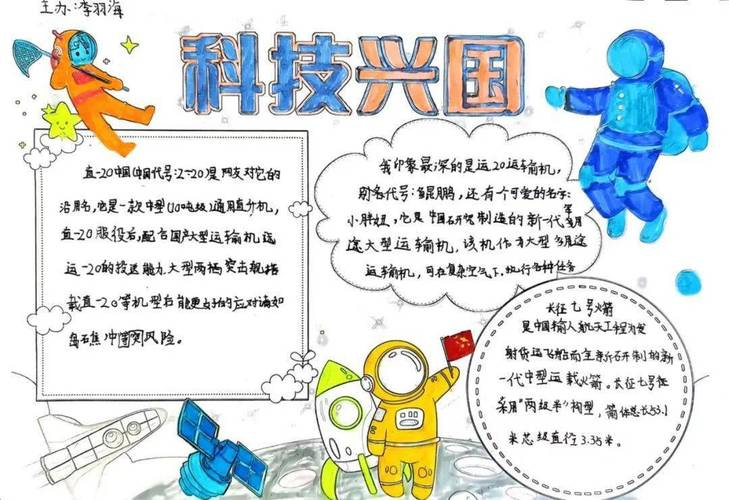 主办:李羽海
科技兴国
直-20中国(中国代号:Z-20)是网友对它的
沿用名,它是一款中型(10吨级)通用直升机,
直-20服役后,配合国产大型运输机运
运-20的投送能力,大型两栖突击舰搭
载直-20等机型后能更好的应对诸如
岛礁冲突风险。
我印象最深的是运20运输机,
别名代号:鲲鹏,还有个可爱的名字:
小胖妞,它是中国研究制造的新一代军
途大型运输机,该机作为大型多用途
运输机,可在复杂空气下,执行各种任务
长征七号火箭
是中国载人航天工程为发
射货运飞船而全新研制的新
一代中型运载火箭。长征七号
采用"两级半"构型,箭体总长53.1
米芯级直径3.35米。